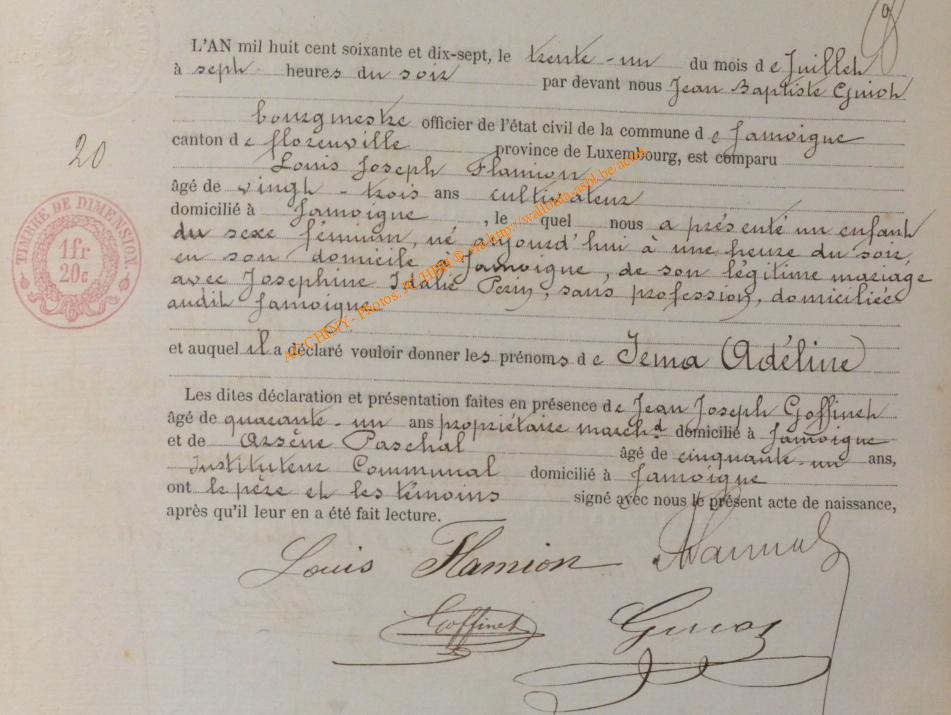 L'AN mil huit cent soixante et dix-sept, le trente-un du mois de Juillet
à sept heures du soir par devant nous Jean Baptiste Guiot
bourgmestre officier de l'état civil de la commune de Jamoigne
canton de florenville province de Luxembourg, est comparu
Louis Joseph Flamion
âgé de vingt-trois ans cultivateur
domicilié à Jamoigne, le quel nous a présenté un enfant
du sexe féminin, né aujourd'hui à une heure du soir,
en son domicile à Jamoigne, de son légitime mariage
avec Josephine Idalie Perin, sans profession, domiciliée
audit Jamoigne
et auquel il a déclaré vouloir donner les prénoms de Jema (Adéline)
Les dites déclaration et présentation faites en présence de Jean Joseph Goffinet
âgé de quarante-un ans propriétaire march.d domicilié à Jamoigne
et de Arsène Paschal âgé de cinquante-un ans,
Instituteur Communal domicilié à Jamoigne
ont le père et les témoins signé avec nous le présent acte de naissance,
après qu'il leur en a été fait lecture.
Louis Flamion
Goffinet Guiot
20
TIMBRE DE DIMENSION
1fr
20c